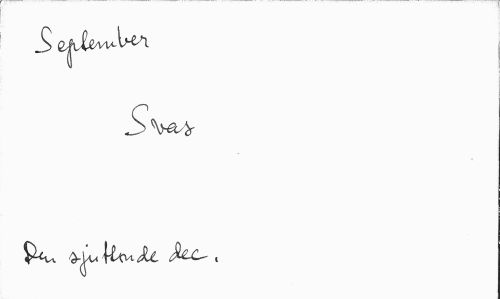 September
Svar
Den sjuttonde dec.